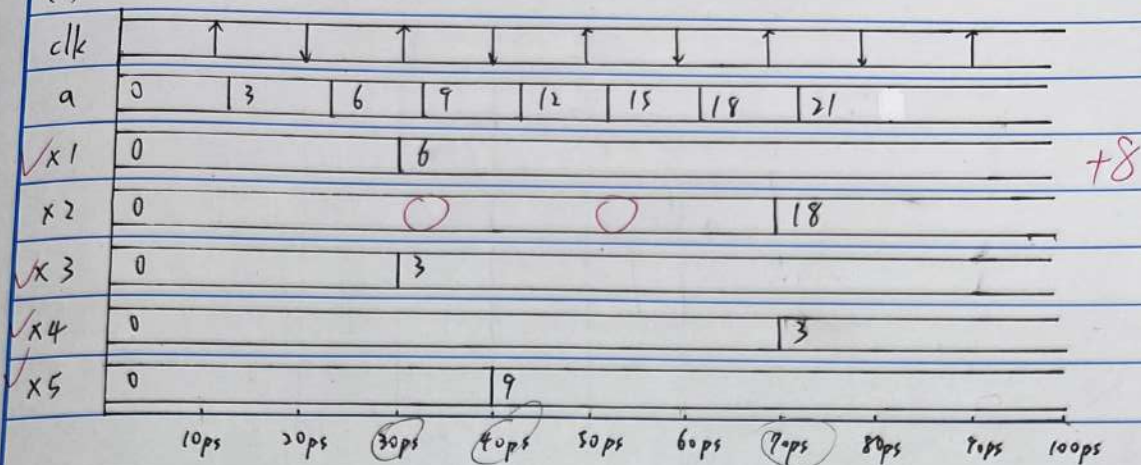 clk
a 0 3 6 9 12 15 18 21
✓x1 0 6 +8
x2 0 18
✓x3 0 3
✓x4 0 3
✓x5 0 9
10ps 20ps 30ps 40ps 50ps 60ps 70ps 80ps 90ps 100ps